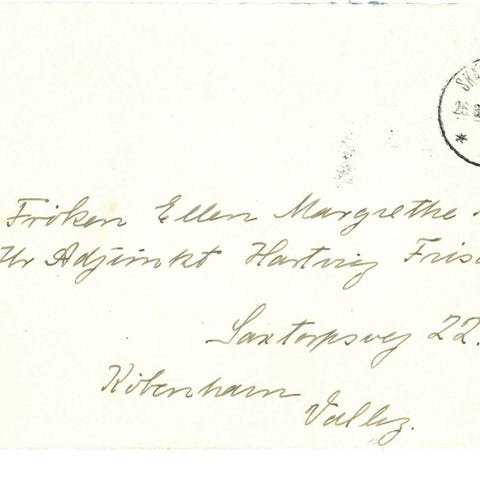 SKA
26.8
Fröken Ellen Margrethe
Hr Adjunkt Hartvig Fris
Saxtorpsvej 22.
København
Valby.